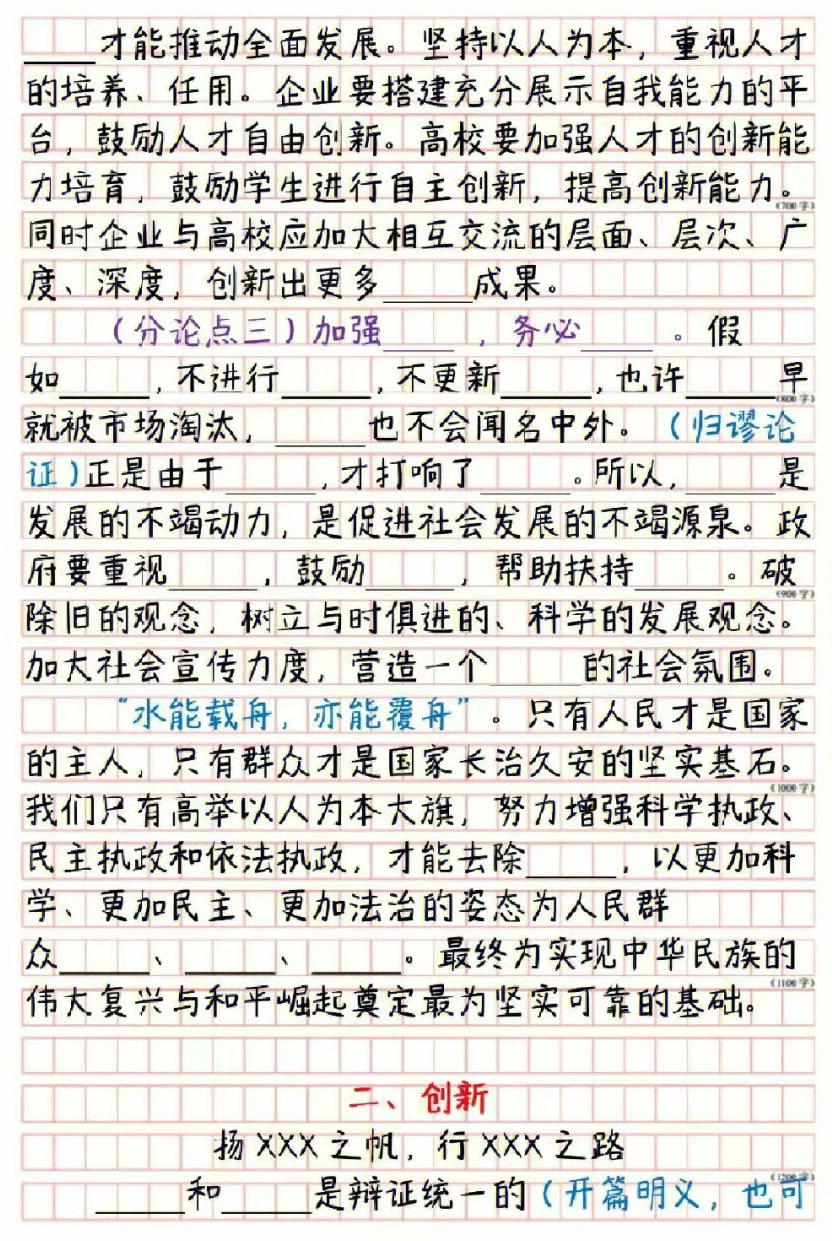 ____才能推动全面发展。坚持以人为本，重视人才
的培养、任用。企业要搭建充分展示自我能力的平
台，鼓励人才自由创新。高校要加强人才的创新能
力培育，鼓励学生进行自主创新，提高创新能力。
(700字)
同时企业与高校应加大相互交流的层面、层次、广
度、深度，创新出更多_____成果。
（分论点三）加强____，务必____。假
如_____，不进行_____，不更新_____，也许_____早
(800字)
就被市场淘汰，_____也不会闻名中外。（归谬论
证）正是由于_____，才打响了_____。所以，_____是
发展的不竭动力，是促进社会发展的不竭源泉。政
府要重视_____，鼓励_____，帮助扶持_____。破
(900字)
除旧的观念，树立与时俱进的、科学的发展观念。
加大社会宣传力度，营造一个_____的社会氛围。
“水能载舟，亦能覆舟”。只有人民才是国家
的主人，只有群众才是国家长治久安的坚实基石。
(1000字)
我们只有高举以人为本大旗，努力增强科学执政、
民主执政和依法执政，才能去除_____，以更加科
学、更加民主、更加法治的姿态为人民群
众_____、_____、_____。最终为实现中华民族的
(1100字)
伟大复兴与和平崛起奠定最为坚实可靠的基础。
二、创新
扬XXX之帆，行XXX之路
(1200字)
_____和_____是辩证统一的（开篇明义，也可